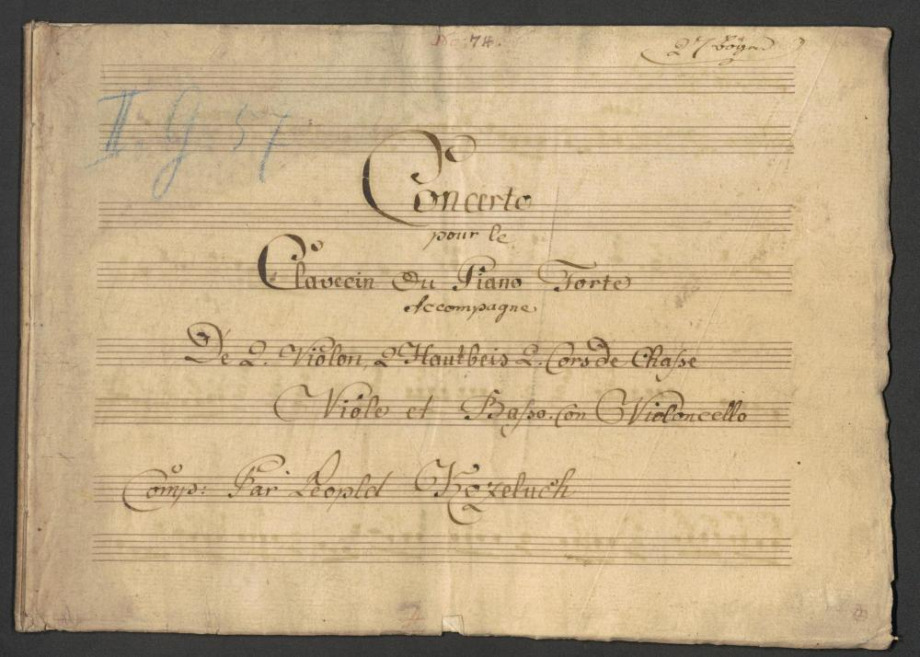 No: 78.
II g 57
Concerto
pour le
Clavecin Ou Piano Forte
Accompagne
De 2. Violon, 2 Hautbois 2. Cors de Chasse
Viole et Basso. Con Violoncello
Comp: Par Leopld Kozeluch